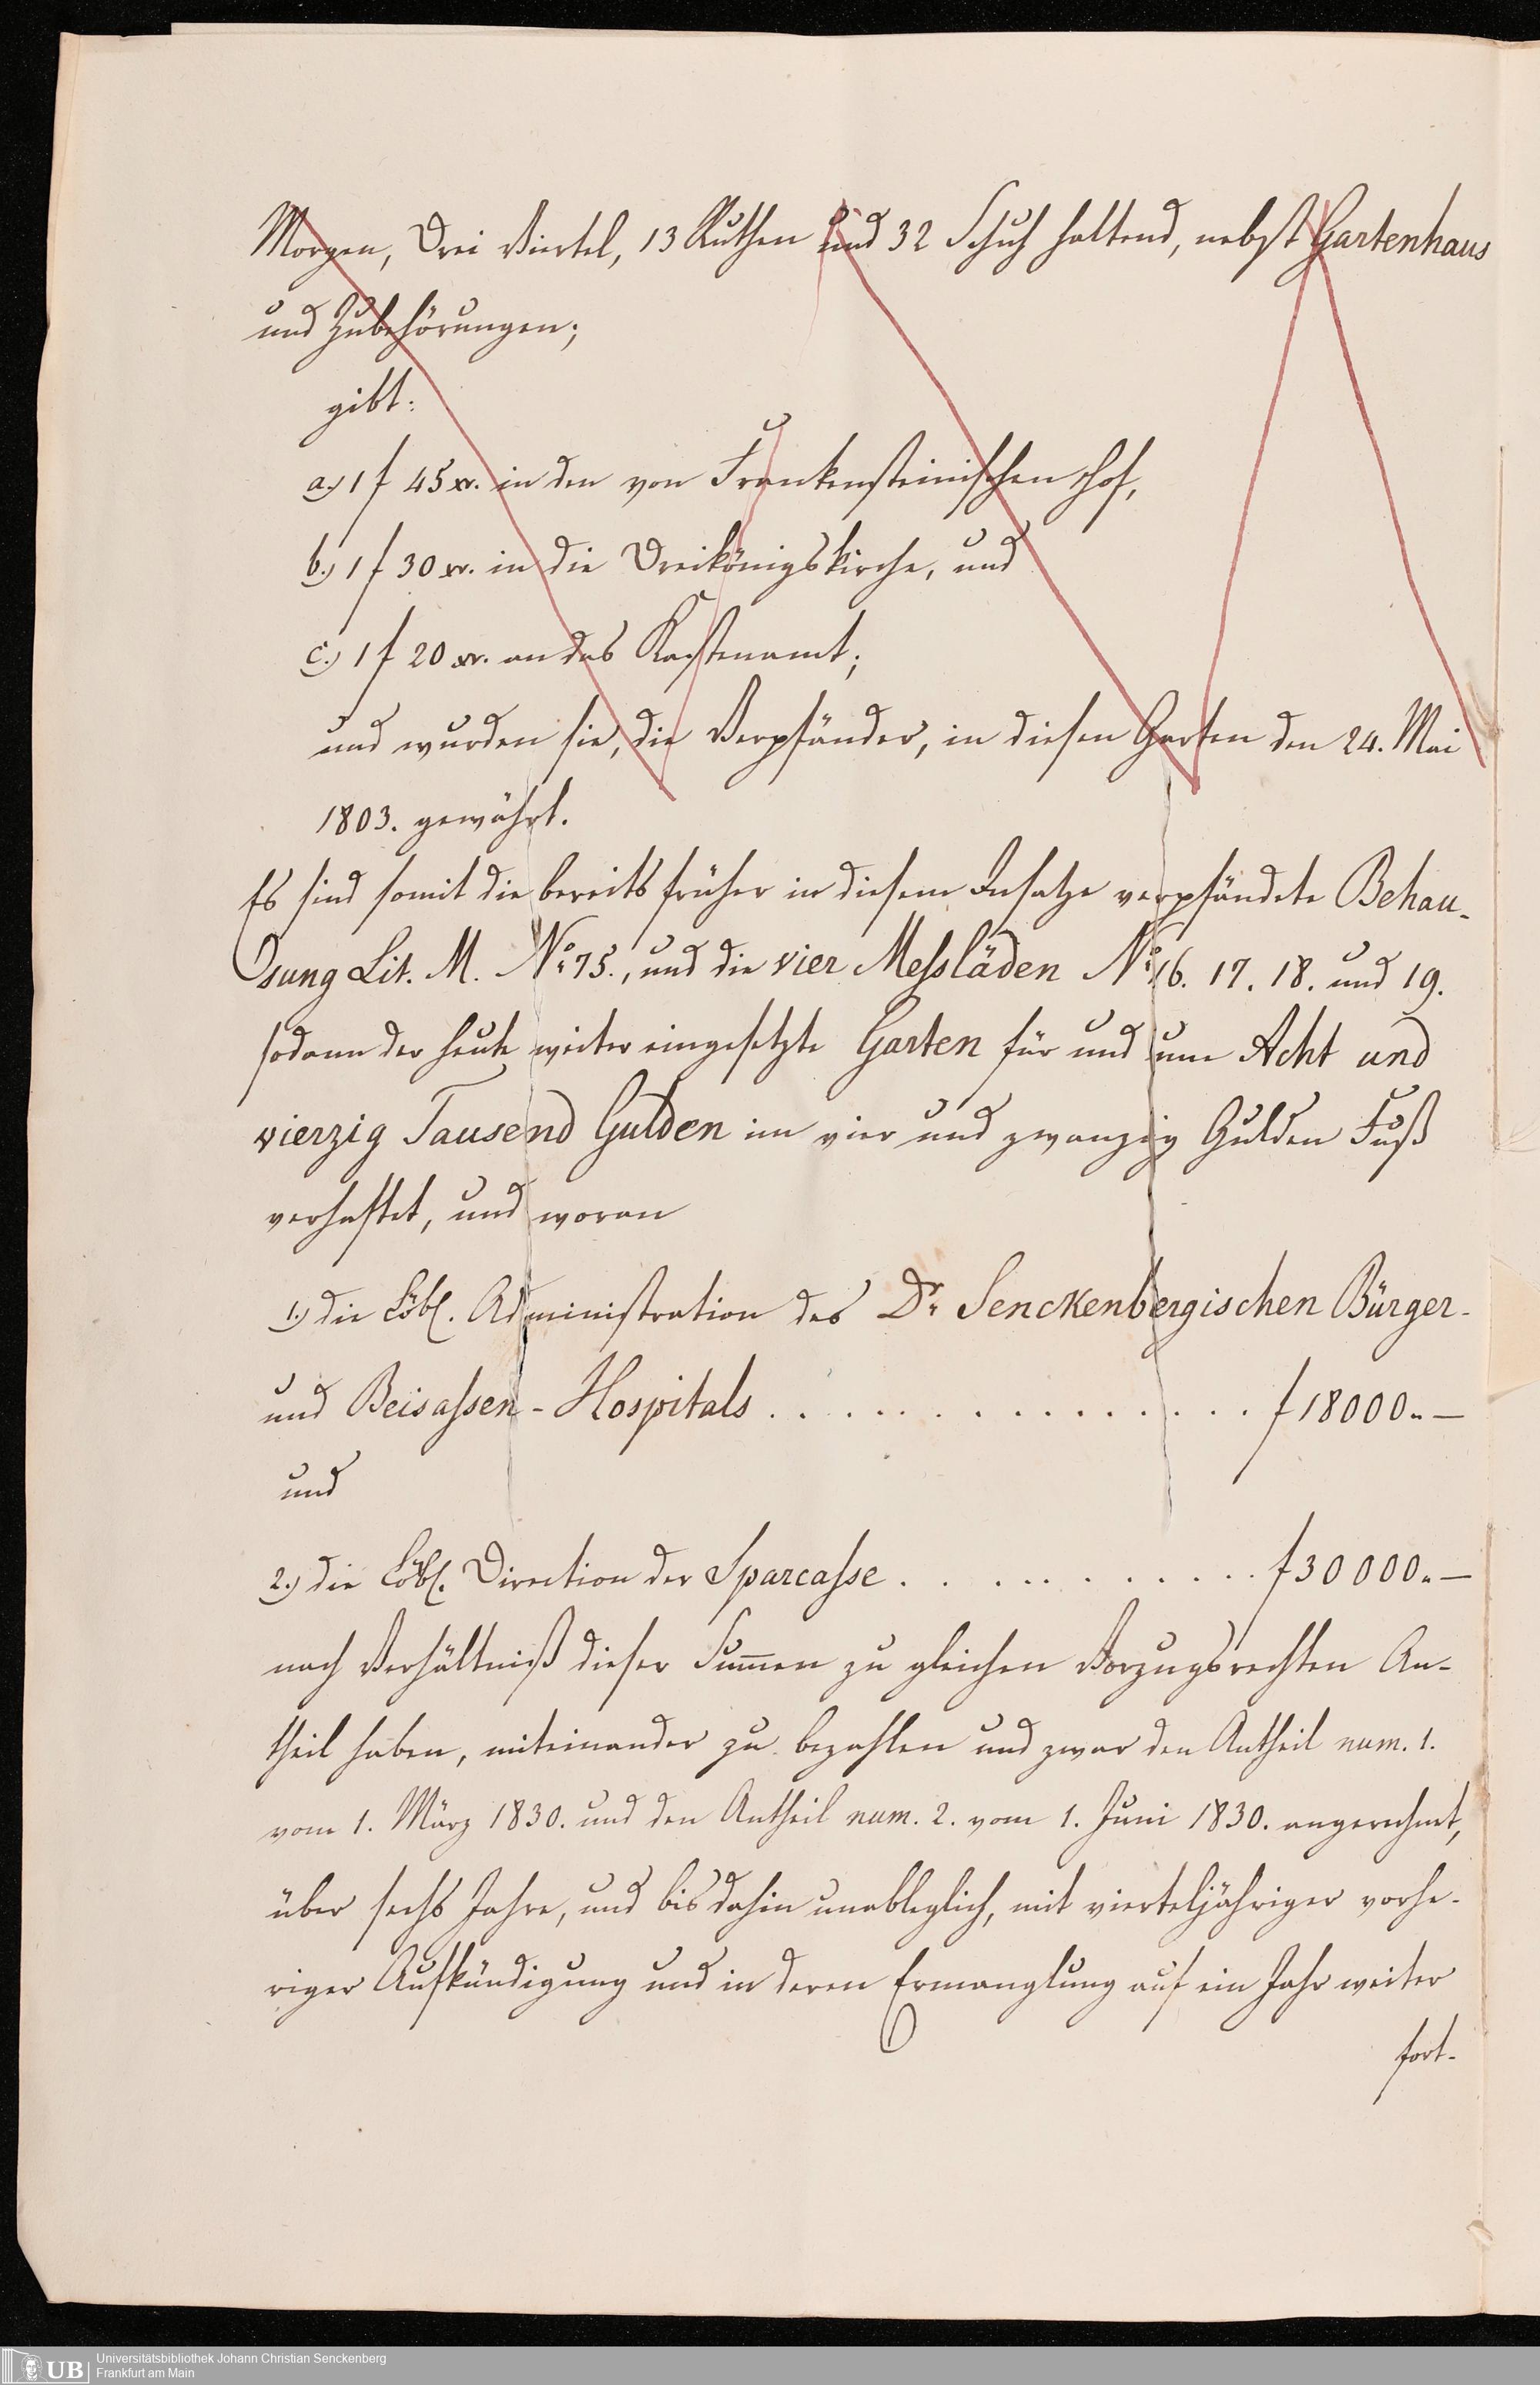 Morgen, Drei Viertel, 13 Ruthen und 32 Schuh haltend, nebst Gartenhaus
und Zubehörungen;
gibt:
a.) 1 f 45 xr. in den von Frankensteinischen Hof,
b.) 1 f 30 xr. in die Dreikönigskirche, und
c.) 1 f 20 xr. an das Kastenamt;
und wurden sie, die Verpfänder, in diesen Garten den 24. Mai
1803. gewährt.
Es sind somit die bereits früher in diesem Insatze verpfändete Behau-
sung Lit. M. No. 75., und die vier Messläden No. 16. 17. 18. und 19.
sodann der heute weiter eingesetzte Garten für und um Acht und
vierzig Tausend Gulden im vier und zwanzig Gulden Fuß
verhaftet, und woran
1.) die Löbl. Administration des Dr. Senckenbergischen Bürger-
und Beisassen-Hospitals . . . . . . . . . . . . . . . . f 18000.. —
und
2.) die Löbl. Direction der Sparcasse . . . . . . . . . . . . f 30000.. —
nach Verhältniß dieser Summen zu gleichen Vorzugsrechten An-
theil haben, miteinander zu bezahlen und zwar den Antheil num. 1.
vom 1. März 1830. und den Antheil num. 2. vom 1. Juni 1830. angerechnet,
über sechs Jahre, und bis dahin unableglich, mit vierteljähriger vorhe-
riger Aufkündigung und in deren Ermanglung auf ein Jahr weiter
fort-
UB
Universitätsbibliothek Johann Christian Senckenberg
Frankfurt am Main